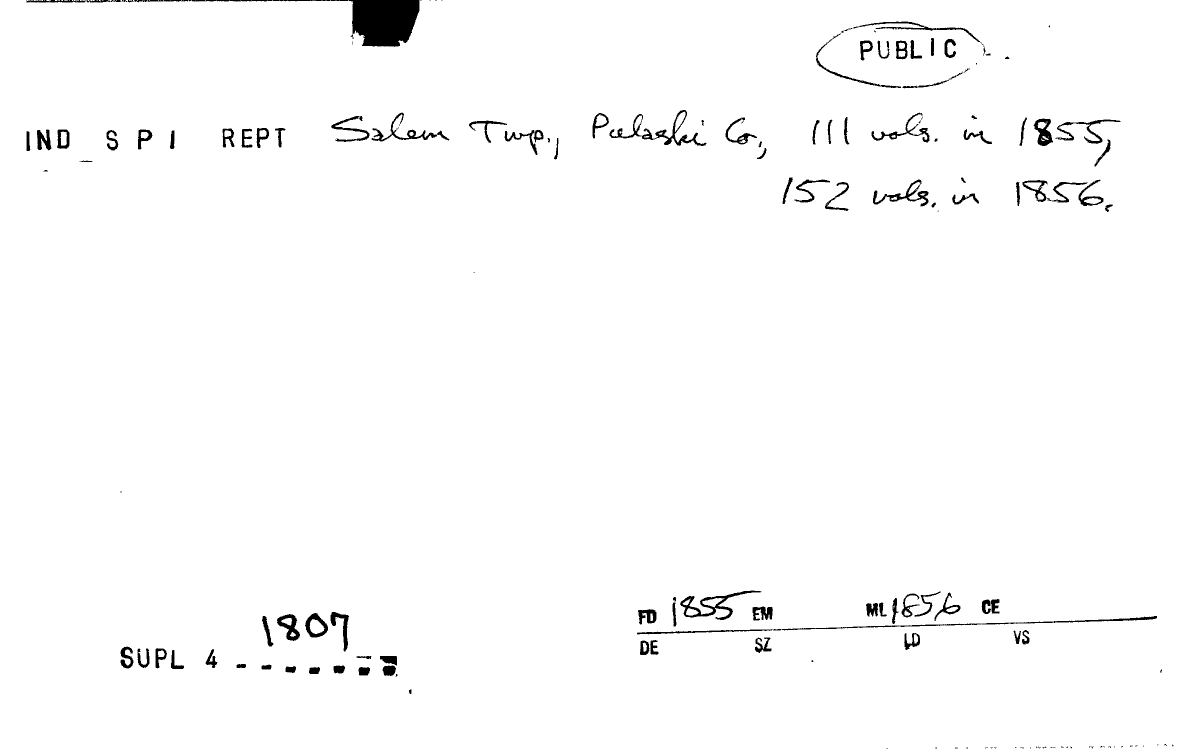 PUBLIC
IND S P I REPT Salem Twp., Pulaski Co., 111 vols. in 1855,
152 vols. in 1856.
1807
SUPL 4 - - - - - - -
FD 1855 EM ML 1856 CE
DE SZ LD VS